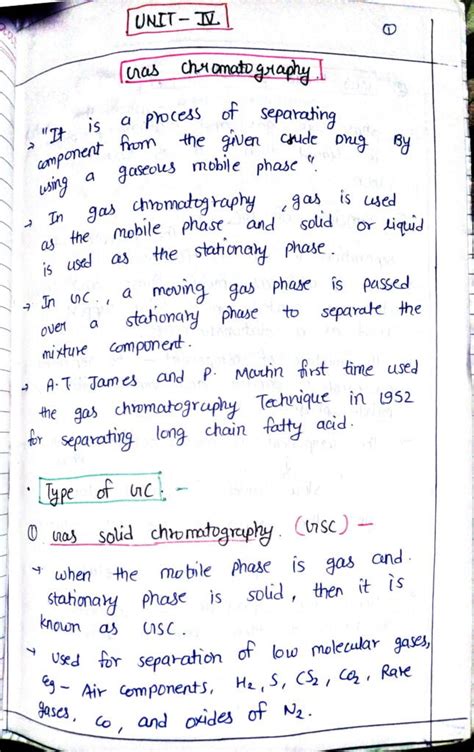 UNIT - IV
①
Gas chromatography.
→ "It is a process of separating
component from the given crude Drug By
using a gaseous mobile phase".
→ In gas chromatography, gas is used
as the mobile phase and solid or liquid
is used as the stationary phase.
→ In GC., a moving gas phase is passed
over a stationary phase to separate the
mixture component.
→ A.T James and P. Martin first time used
the gas chromatography Technique in 1952
for separating long chain fatty acid.
· Type of GC. -
① Gas solid chromatography. (GSC) -
→ when the mobile phase is gas and
stationary phase is solid, then it is
known as GSC.
→ Used for separation of low molecular gases,
eg - Air components, H2, S, CS2, CO2, Rare
gases, CO, and oxides of N2.